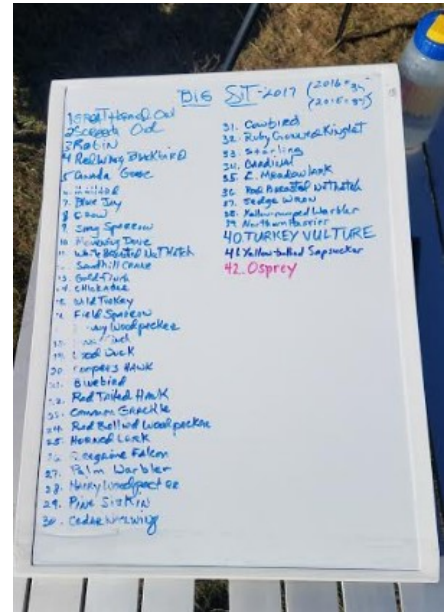 BIG SIT-2017 (2016=
(2015=
1 GREAT Horned Owl
2 Screech Owl
3 Robin
4 Redwing Blackbird
5 Canada Goose
6 Mallard
7. Blue Jay
8. Crow
9. Song Sparrow
10. Mourning Dove
11. White Breasted NutHatch
Sandhill CRANE
13. Goldfinch
14. CHickadee
Wild Turkey
Field Sparrow
Woodpecker
19. Wood Duck
20. Coopers HAWK
21. Bluebird
22. Red Tailed HAWK
23. Common Grackle
24. Red Bellied Woodpecker
25. HORNED LARK
26. Peregrine Falcon
27. Palm Warbler
28. Hairy Woodpecker
29. PINE SISKIN
30. Cedar Waxwing
31. Cowbird
32. Ruby Crowned Kinglet
33. Starling
34. CARDINAL
35 E. Meadowlark
36 Red Breasted NutHatch
37. Sedge Wren
38. Yellow-rumped Warbler
39. Northern Harrier
40. TURKEY VULTURE
41. Yellow bellied Sapsucker
42. Osprey